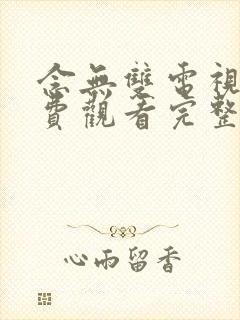 念無雙電視
費觀看完整
心雨留香